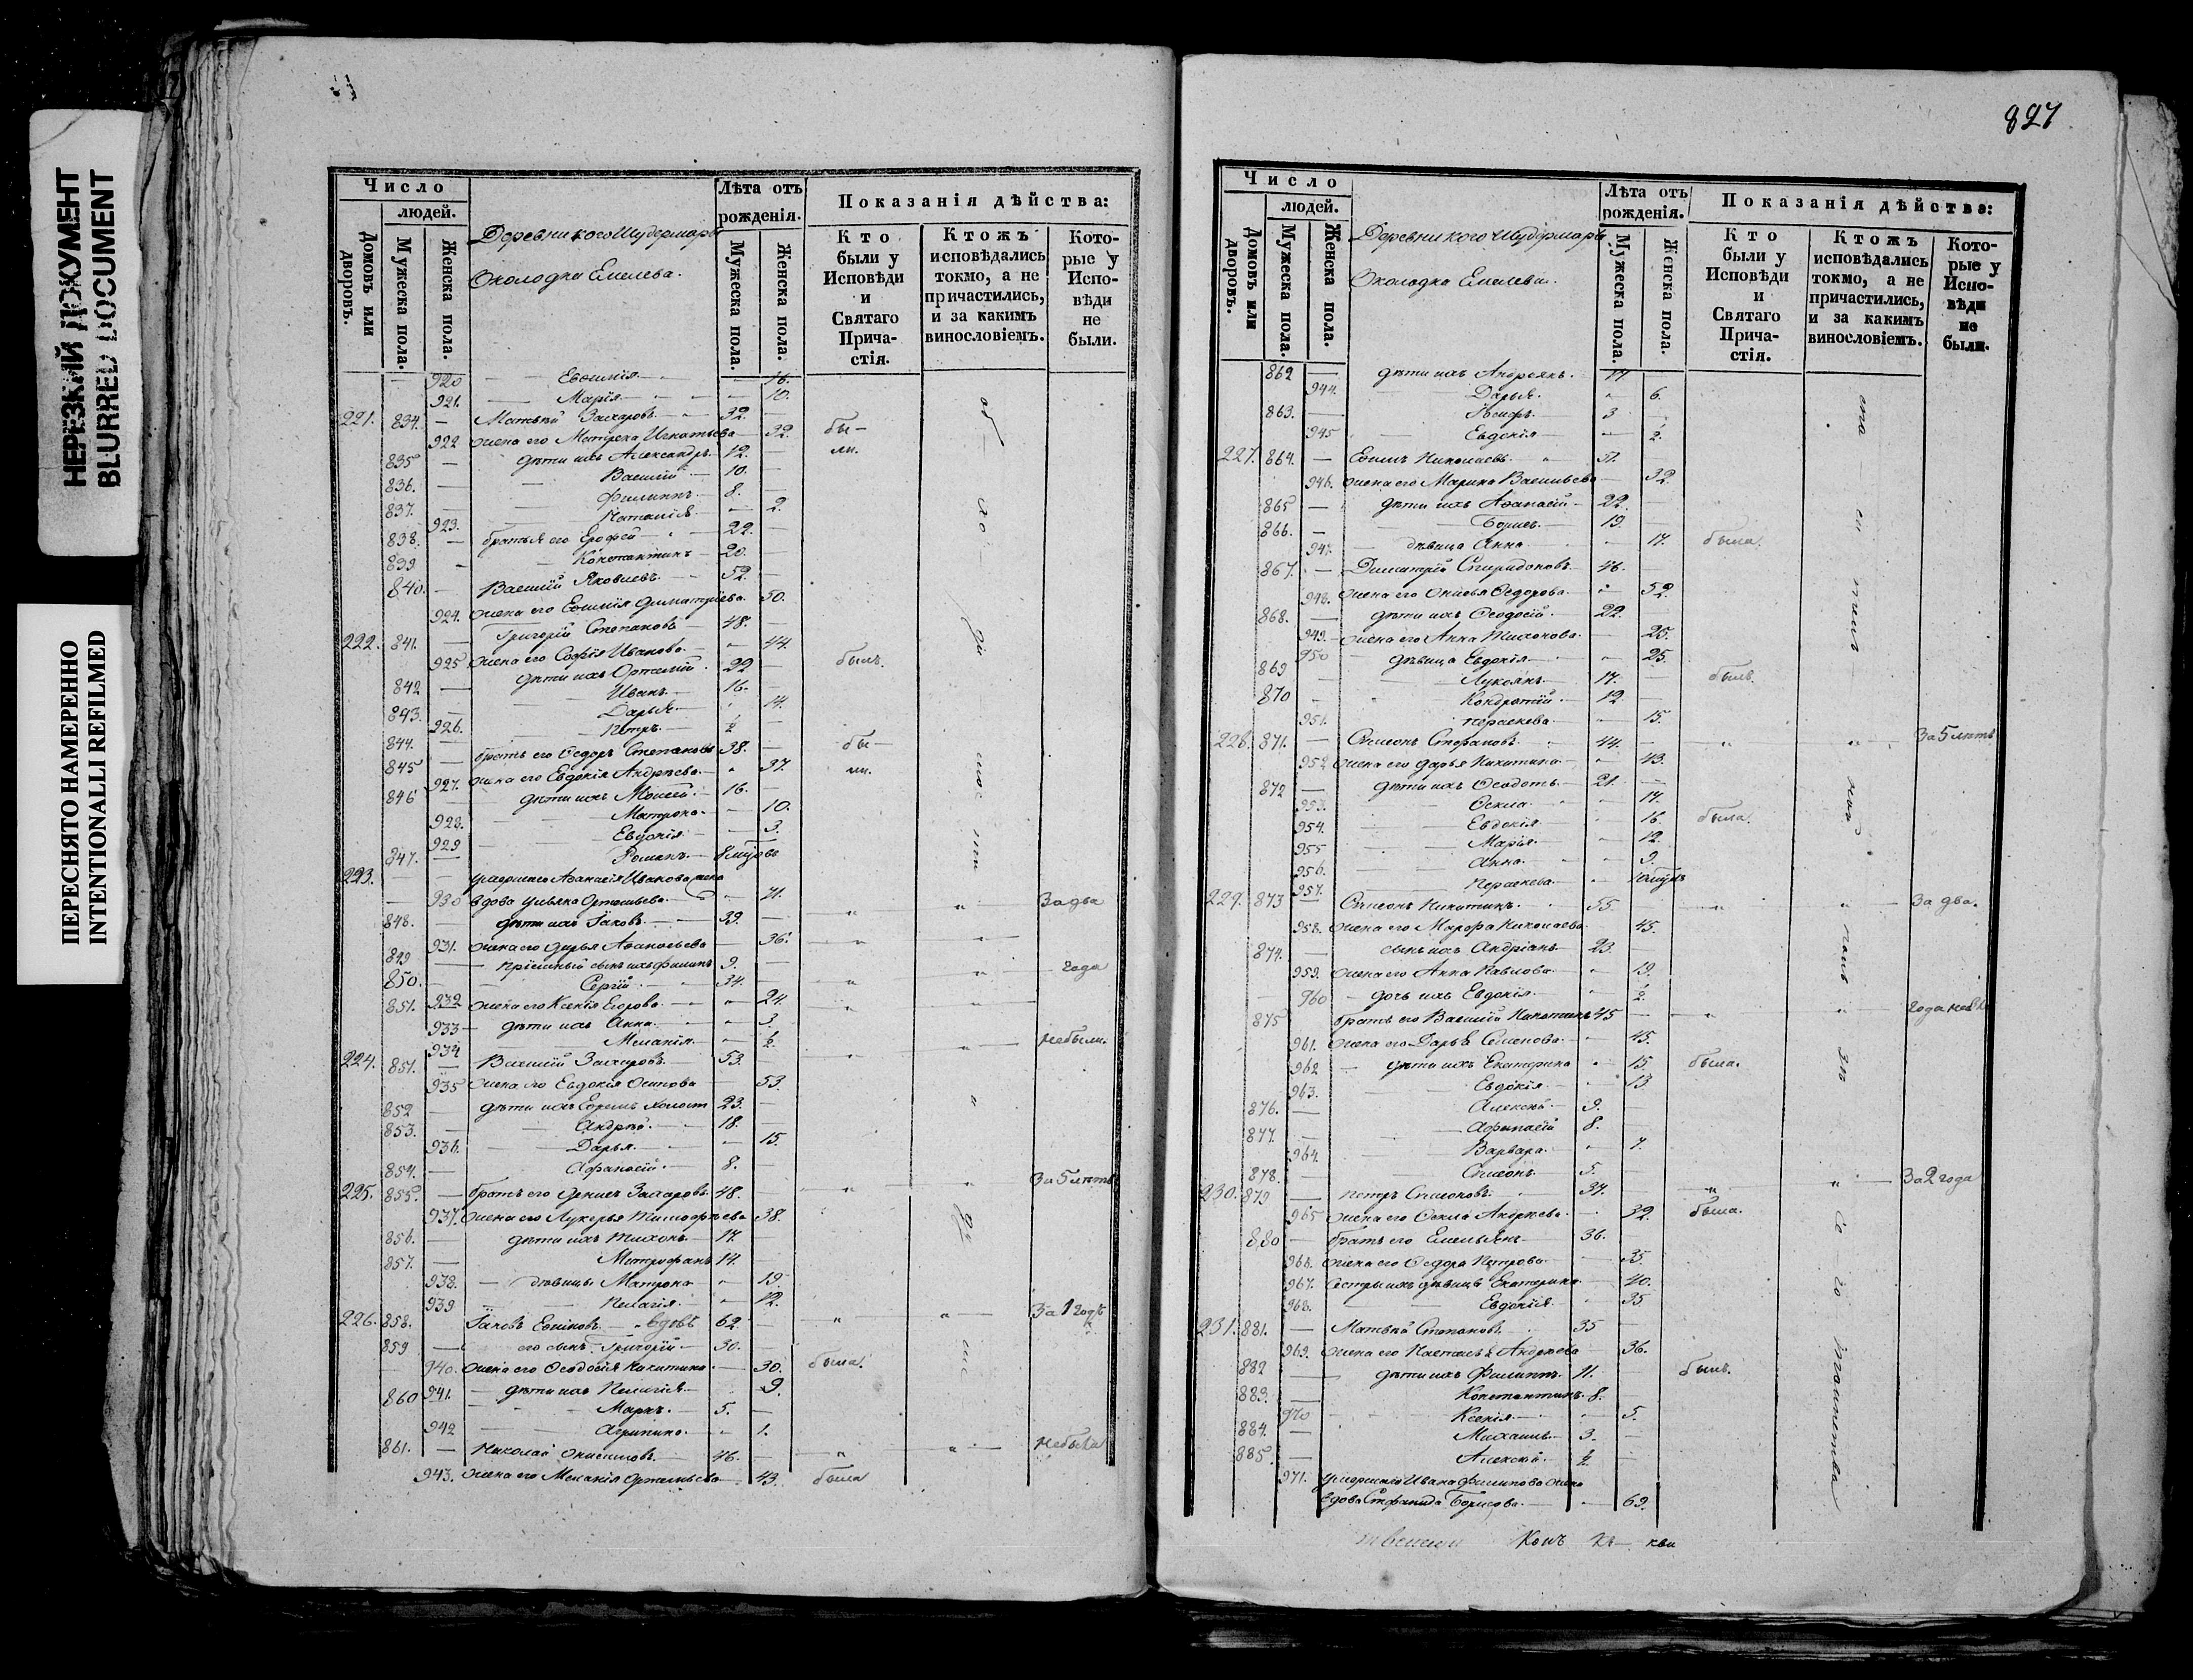 НЕРЕЗКИЙ ДОКУМЕНТ
BLURRED DOCUMENT
ПЕРЕСНЯТО НАМЕРЕННО
INTENTIONALLI REFILMED
Число
людей.
Домовъ или дворовъ.
Мужеска пола.
Женска пола.
Околодка Емелева.
Лѣта отъ рожденія.
Мужеска пола.
Женска пола.
Показанія дѣйства:
Кто были у Исповѣди и Святаго Причастія.
Ктожъ исповѣдались токмо, а не причастились, и за какимъ винословіемъ.
Которые у Исповѣди не были.
920 Евѳимія 16.
921. Марія 10.
221. 834. Матвѣй Захаровъ 32. бы-
922 жена его Матрена Игнатьева 32. ли.
835 дѣти ихъ Александръ 12.
836. Василій 10.
837. Филиппъ 8.
923. Наталія 2.
838. братья его Ерофей 22.
839 Константинъ 20.
840. Василій Яковлевъ 52.
924. жена его Евѳимія Димитріева 50.
222. 841. Григорій Степановъ 48.
925 жена его Софія Иванова 44.
842 дѣти ихъ Ортемій 22 былъ.
843. Иванъ 16.
926. Дарья 14.
844. Петръ ½
845 братъ его Ѳедоръ Степановъ 38. бы-
927. жена его Евдокія Андреева 37. ли.
846 дѣти ихъ Моисей 16.
928. Матрона 10.
929 Евдокія 3.
847. Романъ
223. умершаго Аѳанасія Иванова жена
930 вдова Ульяна Ортемьева 71. За два
848. дѣти ихъ Іаковъ 39.
931. жена его Дарья Аѳанасьева 36.
849 пріемный сынъ ихъ Филипъ 9. года
850. Сергій 34.
851. 932 жена его Ксенія Егорова 24.
933 дѣти ихъ Анна 3.
934 Меланія ½ небыли.
224. 851. Василій Захаровъ 53.
935 жена его Евдокія Осипова 53.
852 дѣти ихъ Ефремъ холост 23.
853. Андрей 18.
936. Дарья 15.
854. Афанасій 8.
225. 855. братъ его Денисъ Захаровъ 48. За 5 лѣтъ
937. жена его Лукерья Тимофѣева 38.
856. дѣти ихъ Тихонъ 17.
857. Митрофанъ 14.
938. дѣвицы Матрона 19.
939 Пелагія 12.
226. 858. вдовъ 62. За 1 годъ
859 его сынъ Григорій 30.
940. жена его Ѳеодосія Никитина 30. была.
860 941. дѣти ихъ Пелагія 9.
Маркъ 5.
942 Агрипина 1.
861. Николай Онисимовъ 46. небылъ
943. жена его Меланія Ортемьева 43. была
827
Число
людей.
Домовъ или дворовъ.
Мужеска пола.
Женска пола.
Околодка Емелева.
Лѣта отъ рожденія.
Мужеска пола.
Женска пола.
Показанія дѣйства:
Кто были у Исповѣди и Святаго Причастія.
Ктожъ исповѣдались токмо, а не причастились, и за какимъ винословіемъ.
Которые у Исповѣди не были.
862 дѣти ихъ Андреянъ 17
944. Дарья 6.
863. Іосифъ 3
945 Евдокія ½.
227. 864. Евѳимъ Николаевъ 51.
946. жена его Марина Васильева 52
865 дѣти ихъ Аѳанасій 22.
866. Борисъ 19.
947. дѣвица Анна 17. была.
867. Димитрій Спиридоновъ 46.
948. жена его Ѳедорова 52
868. дѣти ихъ Ѳеодосій 22.
949. жена его Анна Тихонова 25.
950 дѣвица Евдокія 25.
869 Лукоянъ 17. былъ.
870 Кондратій 12
951. Пораскева 15.
228. 871. Симеонъ Стефановъ 44. За 5 лѣтъ
952 жена его Дарья Никитина 43.
872 дѣти ихъ Ѳеодотъ 21.
953. Ѳекла 17.
954. Евдокія 16. была.
955 Марья 12.
956. Анна 9.
957. Параскева
229. 873 Симеонъ Никитинъ 55. За два.
958. жена его Марфа Николаева 45.
874. сынъ ихъ Андріанъ 23.
959. жена его Анна Павлова 19.
960 дочь ихъ Евдокія ½.
875 братъ его Василій Никитинъ 45
961. жена его Дарья Семенова 45.
962 дѣти ихъ Екатерина 15. была.
963. Евдокія 13
876. Алексѣй 9.
877. Афанасій 8.
964. Варвара 7.
878. Симеонъ 5.
230. 879 Петръ Симоновъ 37. За 2 года
965 жена его Ѳекла Андреева 32. была.
880 братъ его Емельянъ 36.
966. жена его Ѳедора Петрова 35
967. сестры ихъ дѣвицы Екатерина 40.
968. Евдокія 35
231. 881. Матвѣй Степановъ 35
969. жена его Наталья Андреева 36.
882 дѣти ихъ Филиппъ 11. былъ.
883. Константинъ 8.
970 Ксенія 5.
884. Михаилъ 3.
885. Алексѣй ½
971. умершаго Ивана Филипова жена
вдова Стефанида Борисова 69.